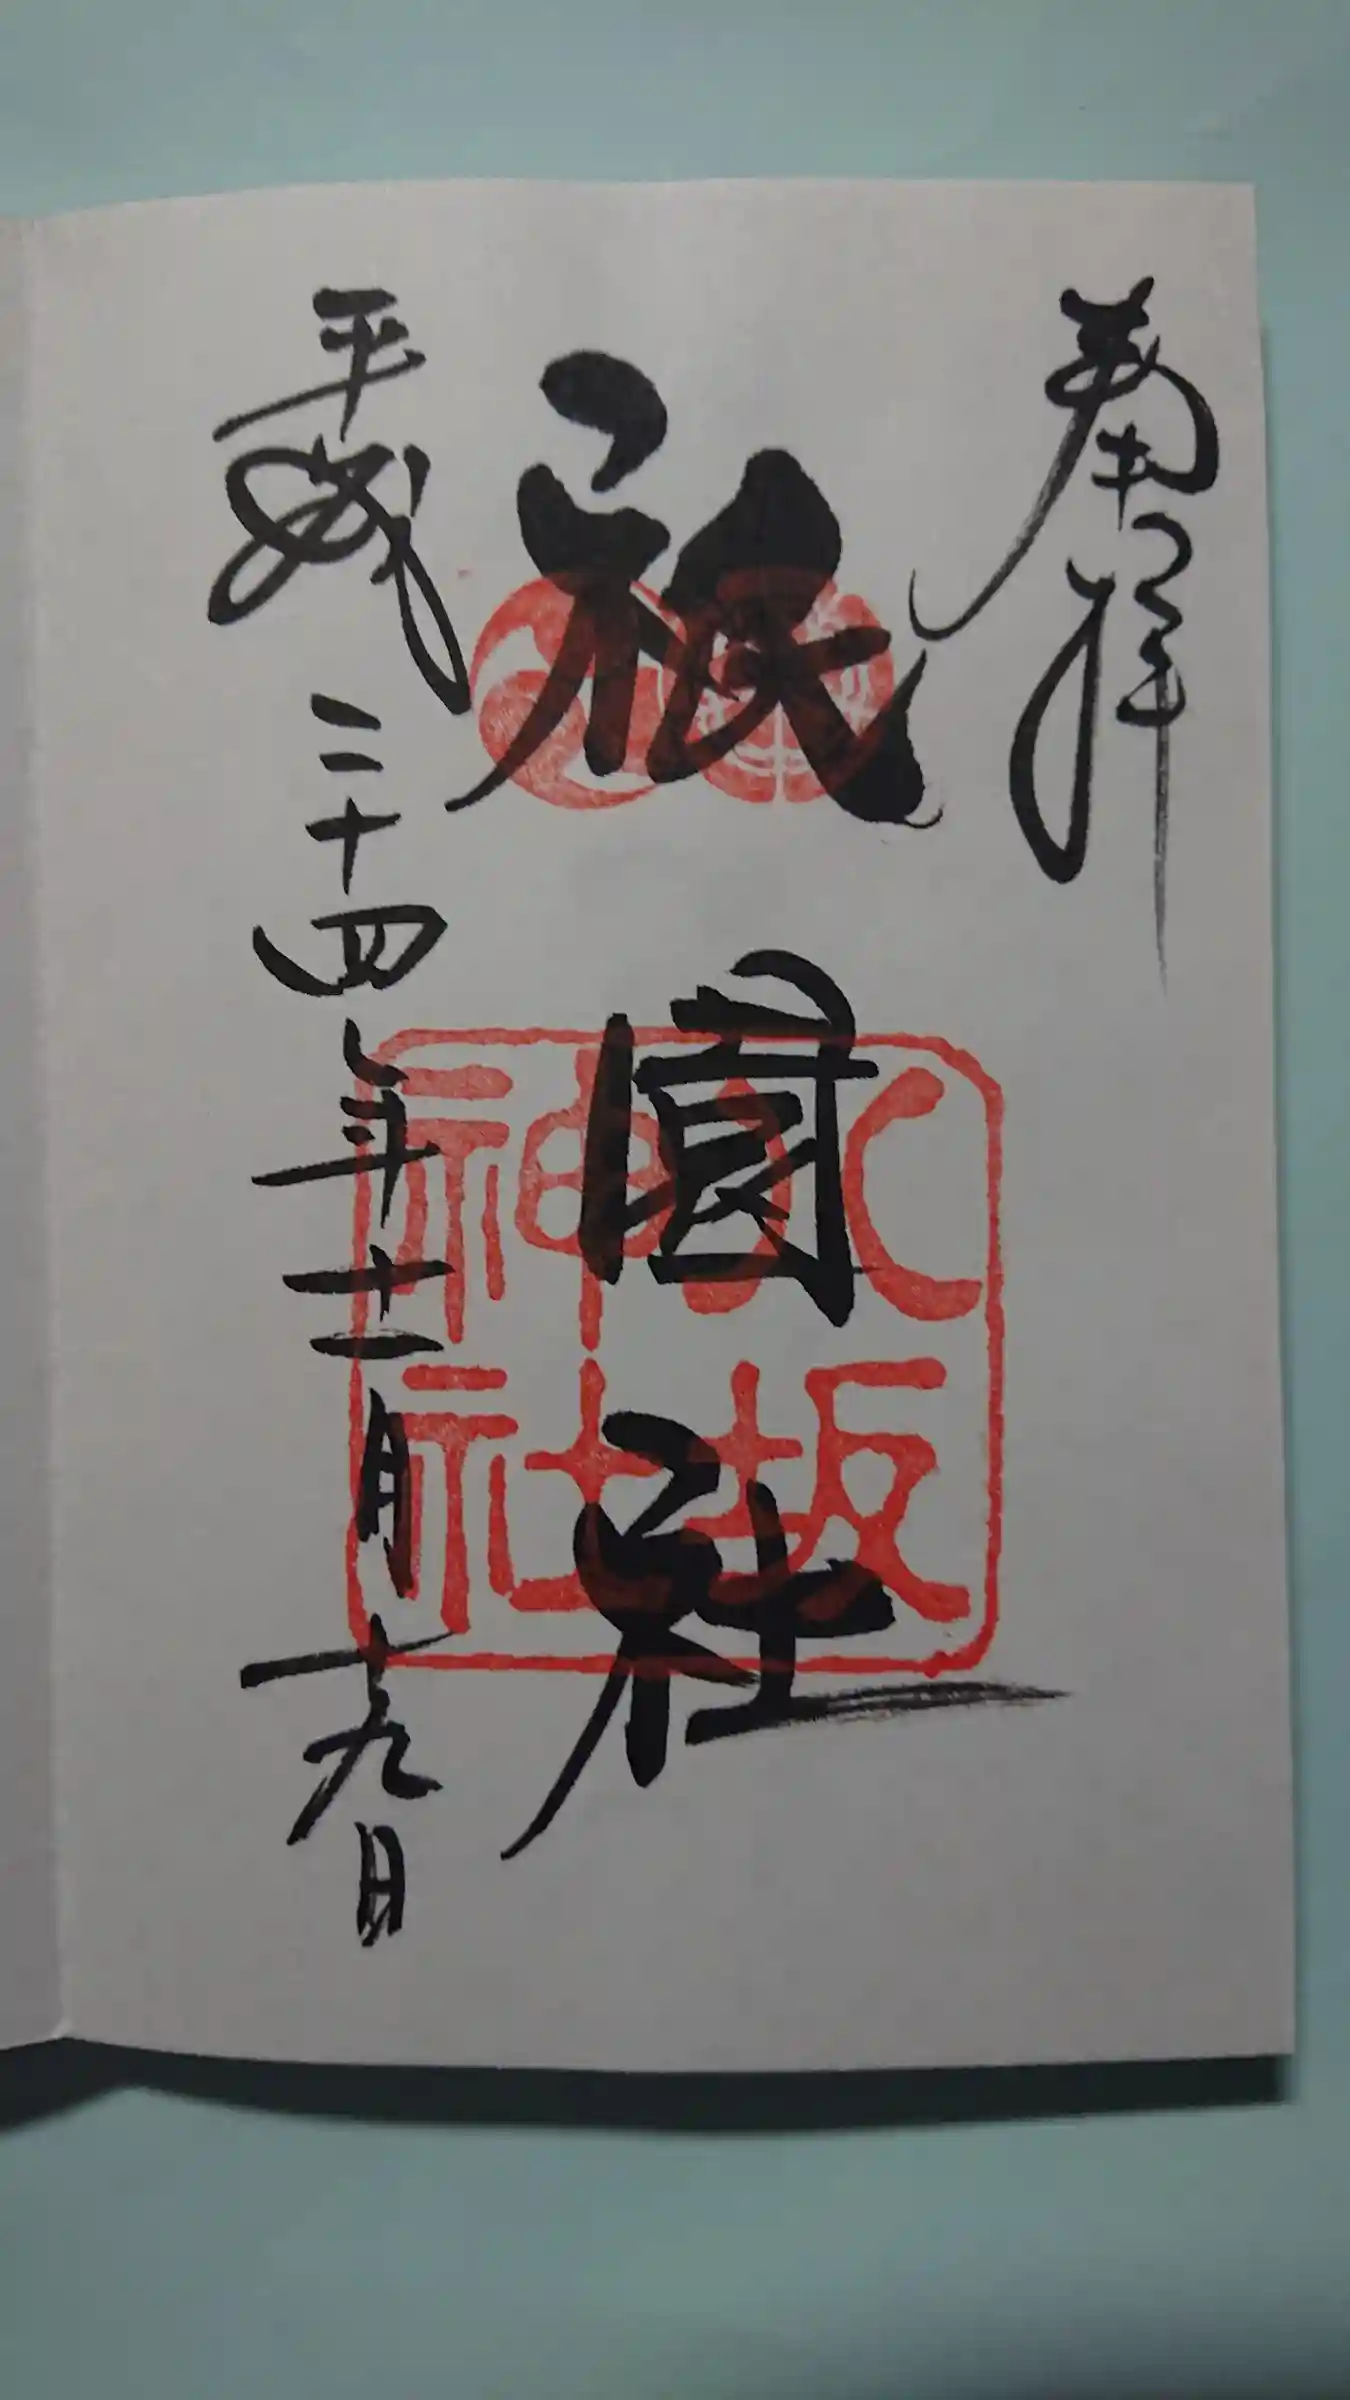 奉拝
祇園社
八坂
神社
平成二十四年十一月十九日